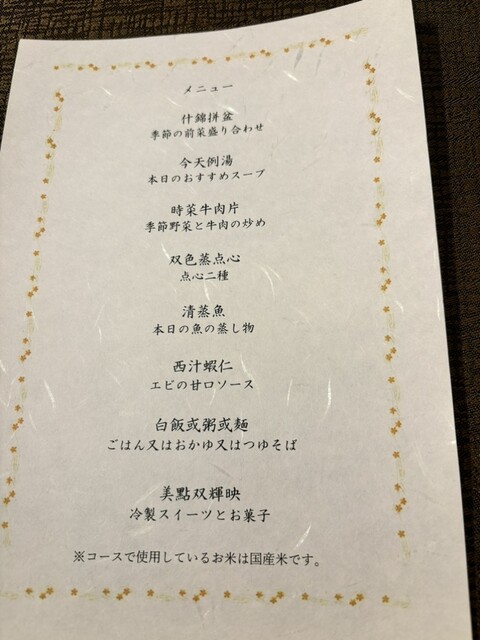 メニュー
什錦拼盆
季節の前菜盛り合わせ
今天例湯
本日のおすすめスープ
時菜牛肉片
季節野菜と牛肉の炒め
双色蒸点心
点心二種
清蒸魚
本日の魚の蒸し物
西汁蝦仁
エビの甘口ソース
白飯或粥或麺
ごはん又はおかゆ又はつゆそば
美點双輝映
冷製スイーツとお菓子
※コースで使用しているお米は国産米です。